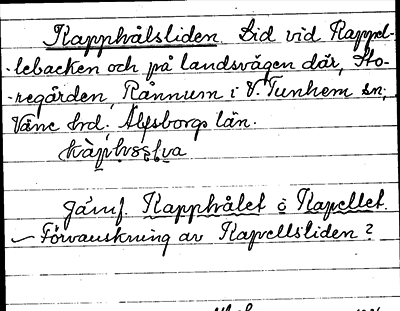 Kapphålsliden, Lid vid Kappel-
-lebacken och på landsvägen där, Sto-
-regården, Rånnum i V. Tunhem sn;
Väne hrd; Älfsborgs län.
Jämf. Kapphålet o Kapellet.
– Förvanskning av Kapellsliden?